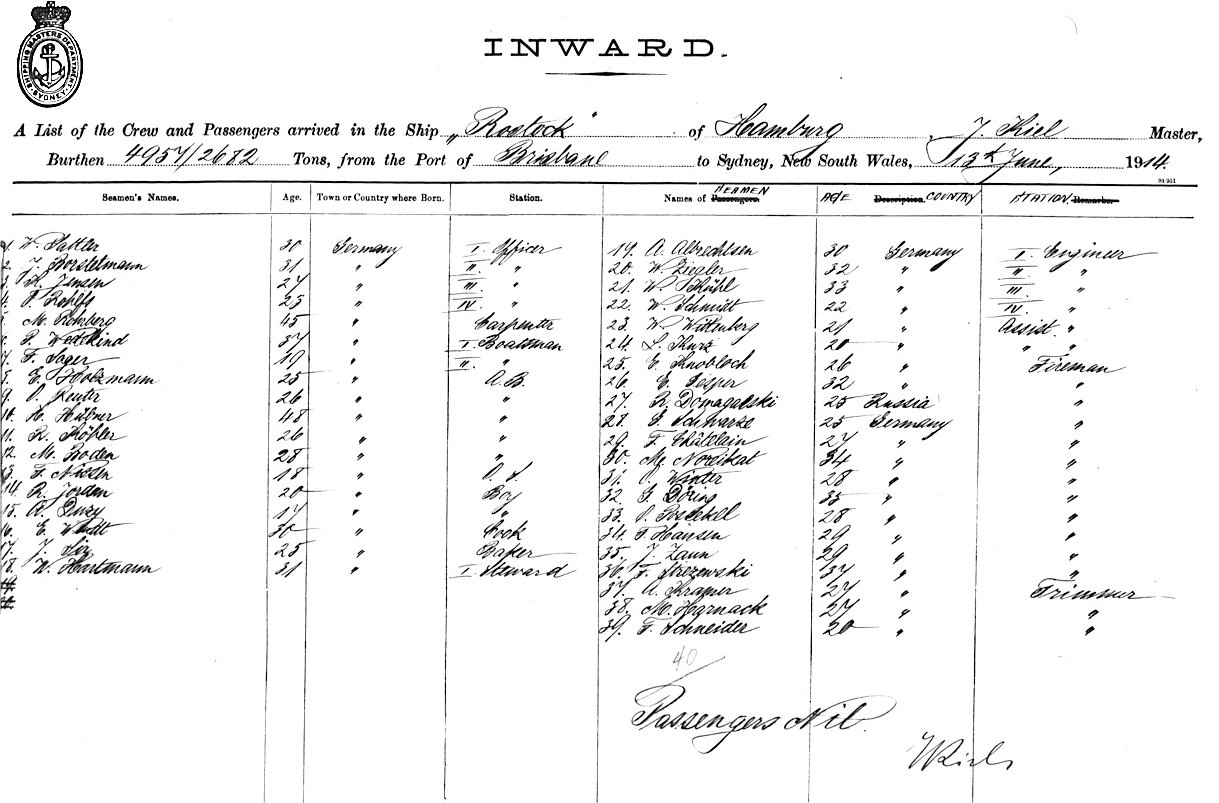 SHIPPING MASTERS DEPARTMENT SYDNEY
INWARD.
A List of the Crew and Passengers arrived in the Ship „Rostock" of Hamburg, J. Kiel Master,
Burthen 4957/2682 Tons, from the Port of Brisbane to Sydney, New South Wales, 13th June, 1914.
S4 951
Seamen's Names. Age. Town or Country where Born. Station.
1. W. Sattler 30 Germany I. Officer
2. J. Borstelmann 31 " II. "
3. H. Jensen 27 " III. "
4. Rohlfs 23 " IV. "
5. M. Rohrberg 45 " Carpenter
6. Wedekind 37 " I. Boatsman
7. F. Sager 49 " II. "
8. E. Holzmann 25 " A.B.
9. Reuter 26 " "
10. H. Hübner 48 " "
11. R. Köhler 26 " "
12. M. Boden 28 " "
13. F. Nissen 18 " O.S.
14. R. Jordan 20 " Boy
15. A. 17 " "
16. E. 30 " Cook
17. J. 25 " Baker
18. W. Hartmann 31 " I. Steward
Names of Passengers. SEAMEN AGE Description. COUNTRY STATION Remarks.
19. A. Albrechtsen 30 Germany I. Engineer
20. W. Ziegler 32 " II. "
21. W. Kühl 33 " III. "
22. W. Schmidt 22 " IV. "
23. W. Wittenberg 21 " Assist. "
24. L. Kurz 20 " " "
25. E. Knobloch 26 " Fireman
26. E. Lesper 32 " "
27. R. Domagalski 25 Russia "
28. Schwarze 25 Germany "
29. F. Châtelain 27 " "
30. Mg. Nordikat 34 " "
31. Winter 28 " "
32. G. Döring 35 " "
33. 28 " "
34. F. Hansen 29 " "
35. J. Zann 29 " "
36. F. Strezewski 37 " "
37. A. Kramer 27 " Trimmer
38. M. Harnack 27 " "
39. F. Schneider 20 " "
40
Passengers Nil.